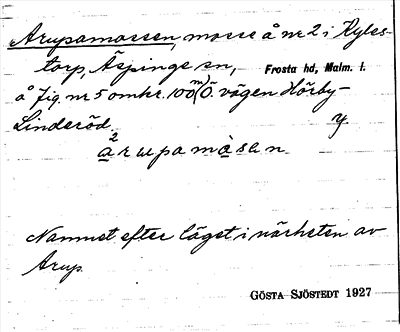 Arupamossen, mosse å nr 2 i Kyles-
torp, Äspinge sn, Frosta hd, Malm. l.
å fig. nr 5 omkr. 100 (m) Ö. vägen Hörby-
Linderöd. y
a²rupamåsen
Namnet efter läget i närheten av
Arup.
GÖSTA SJÖSTEDT 1927